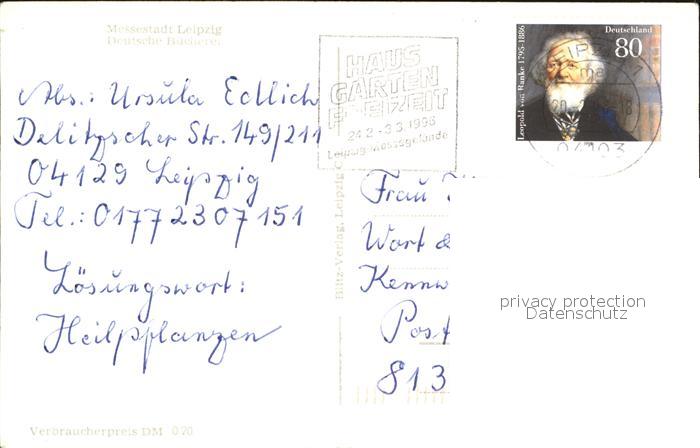 Messestadt Leipzig
Deutsche Bücherei
Abs.: Ursula Edlich
Delitzscher Str. 149/211
04129 Leipzig
Tel.: 01772307151
Lösungswort:
Heilpflanzen
Verbraucherpreis DM 0.20
Bluz-Verlag, Leipzig
HAUS
GARTEN
FREIZEIT
24.2.-3.3.1996
Leipzig Messegelände
Deutschland
80
Leopold von Ranke 1795-1886
04103
Frau
Wort &
Kennw
Post
813
privacy protection
Datenschutz